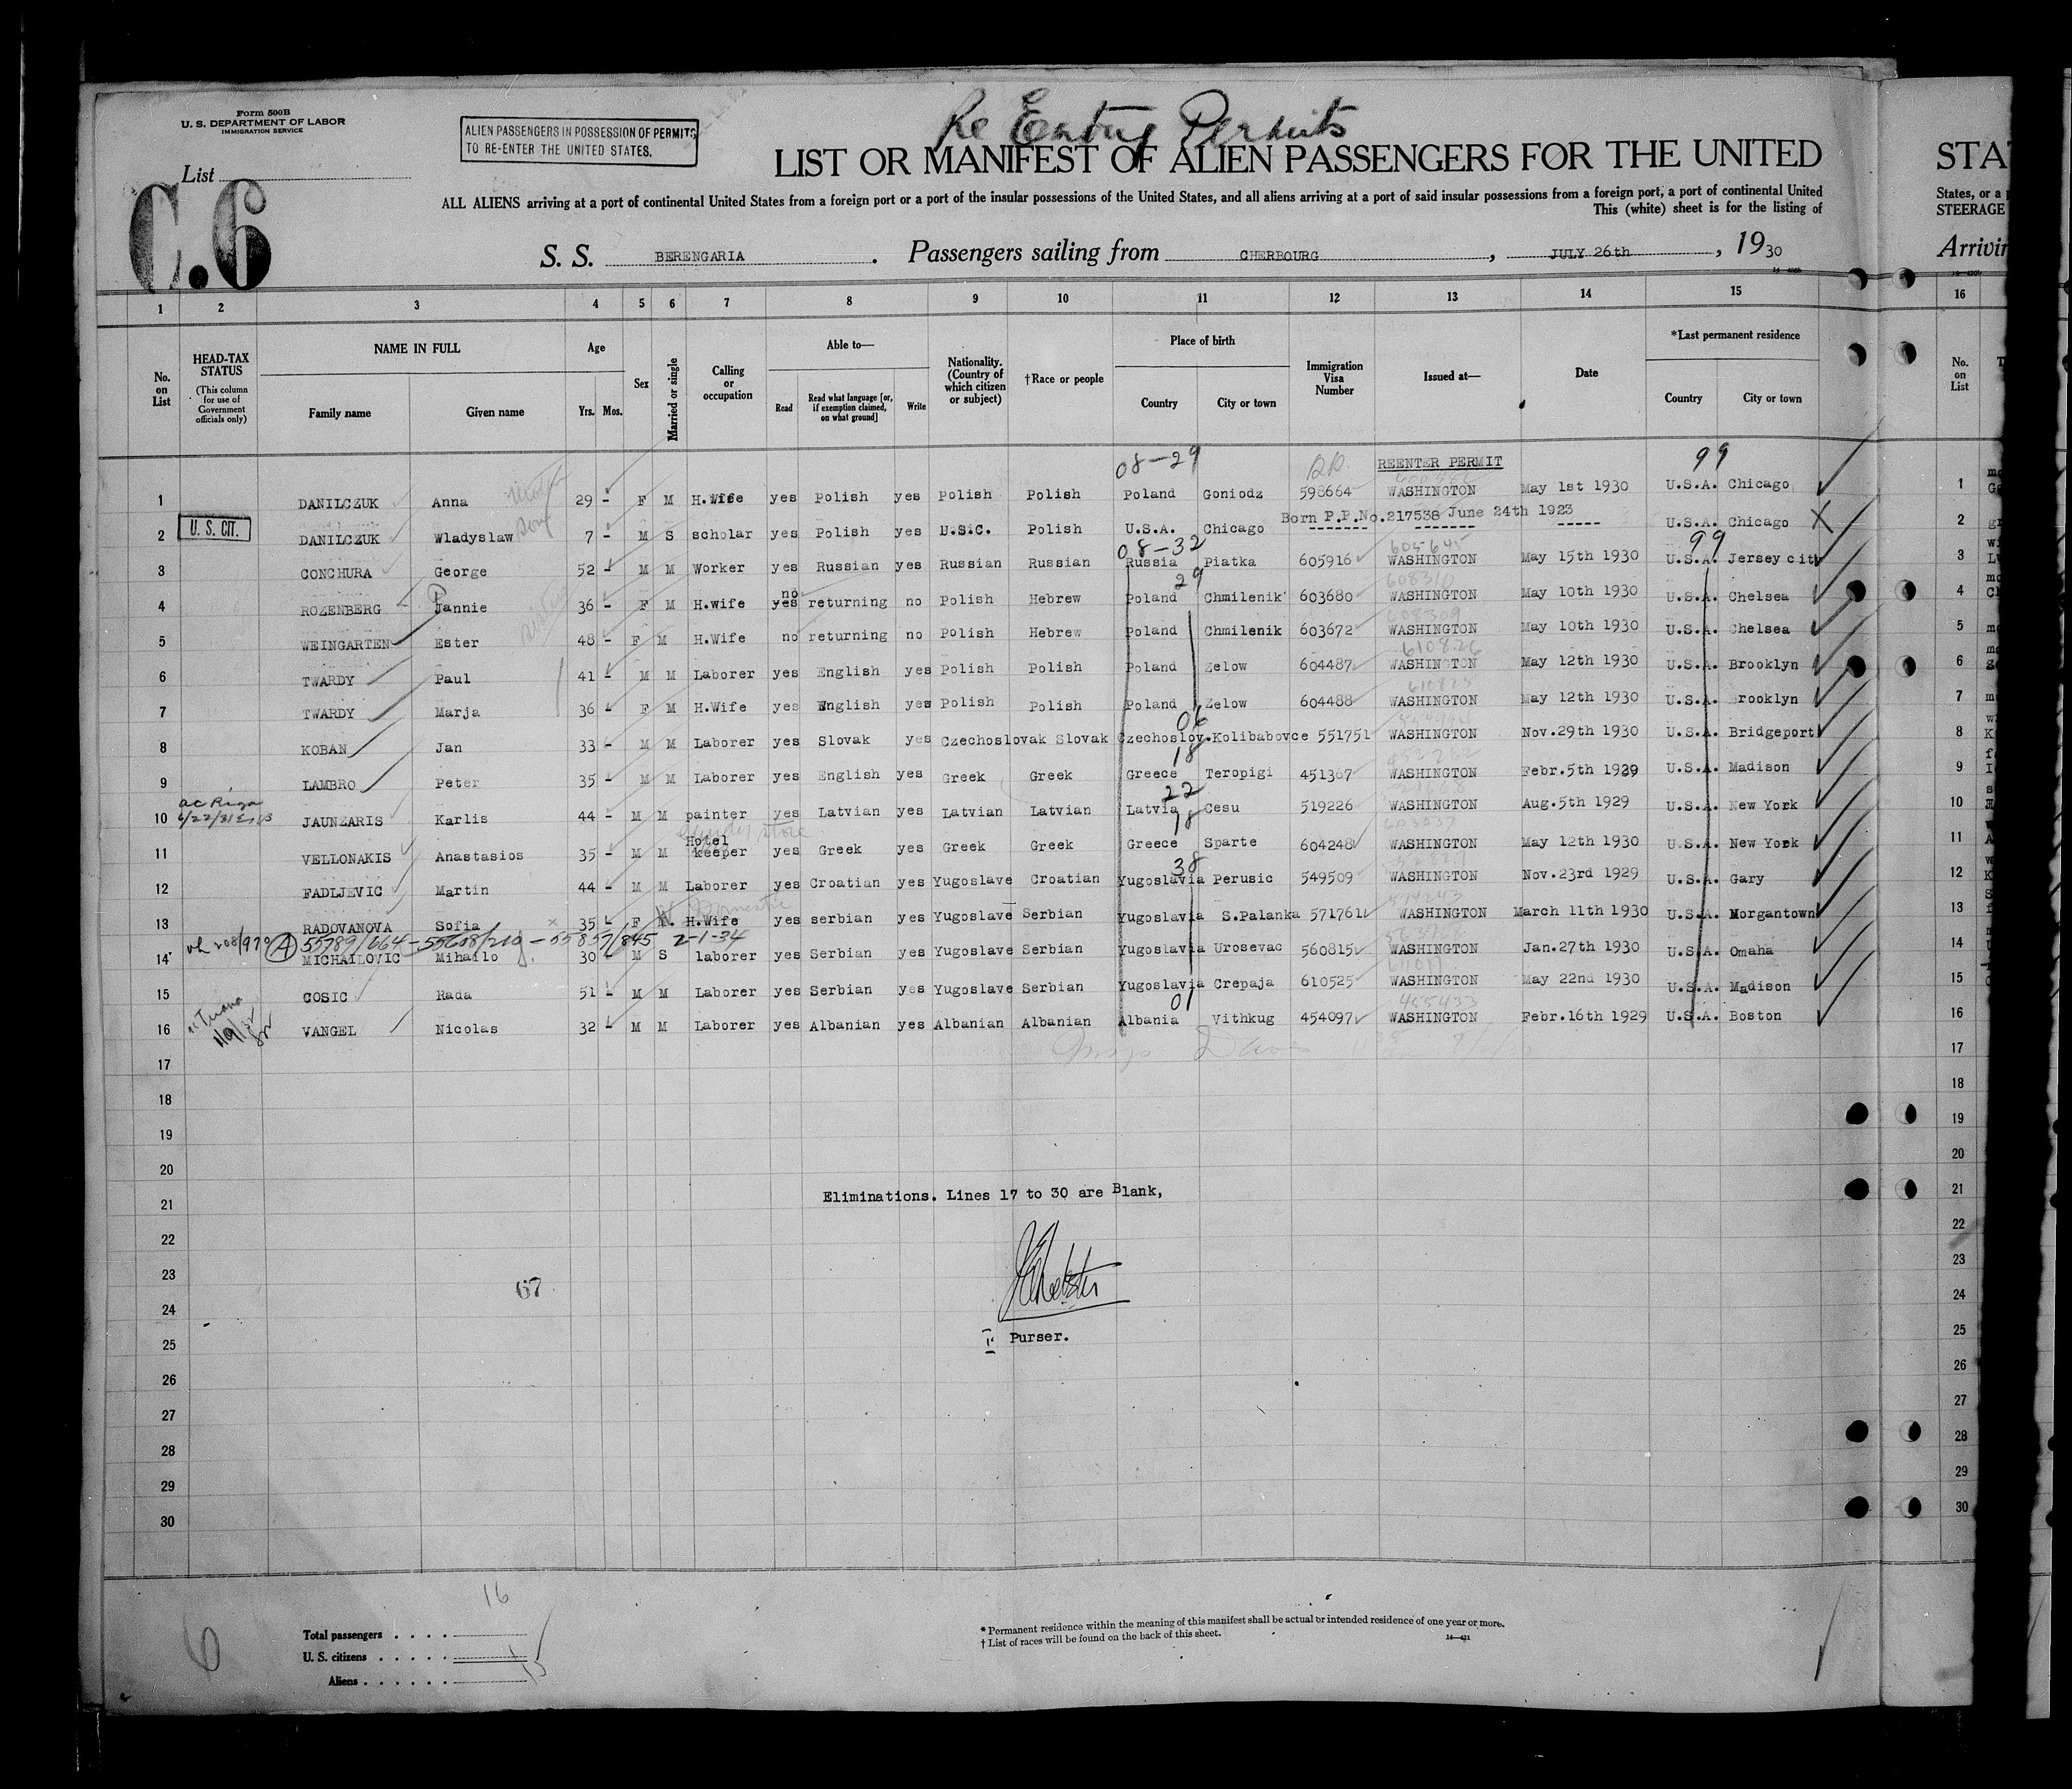 Form 500B
U. S. DEPARTMENT OF LABOR
IMMIGRATION SERVICE
ALIEN PASSENGERS IN POSSESSION OF PERMITS
TO RE-ENTER THE UNITED STATES.
Re Entry Permits
List
C.6
LIST OR MANIFEST OF ALIEN PASSENGERS FOR THE UNITED
STA
ALL ALIENS arriving at a port of continental United States from a foreign port or a port of the insular possessions of the United States, and all aliens arriving at a port of said insular possessions from a foreign port, a port of continental United
States, or a
This (white) sheet is for the listing of
STEERAGE
S. S. BERENGARIA. Passengers sailing from CHERBOURG, JULY 26th, 1930
Arrivin
1 2 3 4 5 6 7 8 9 10 11 12 13 14 15 16
No. on List
HEAD-TAX STATUS
(This column for use of Government officials only)
NAME IN FULL
Family name Given name
Age
Yrs. Mos.
Sex
Married or single
Calling or occupation
Able to—
Read
Read what language [or, if exemption claimed, on what ground]
Write
Nationality. (Country of which citizen or subject)
†Race or people
Place of birth
Country City or town
Immigration Visa Number
Issued at—
Date
*Last permanent residence
Country City or town
No. on List
08-29 REENTER PERMIT 99
1 DANILCZUK Anna 29 - F M H.Wife yes Polish yes Polish Polish Poland Goniodz 598664 WASHINGTON May 1st 1930 U.S.A. Chicago 1
Born P.P.No.217538 June 24th 1923
2 U. S. CIT. DANILCZUK Wladyslaw 7 - M S scholar yes Polish yes U.S.C. Polish U.S.A. Chicago ------- ------- ----- U.S.A. Chicago X 2
08-32 99
3 CONCHURA George 52 - M M Worker yes Russian yes Russian Russian Russia Piatka 605916 WASHINGTON May 15th 1930 U.S.A. Jersey city 3
no 29
4 ROZENBERG Jannie 36 - F M H.wife yes returning no Polish Hebrew Poland Chmilenik' 603680 WASHINGTON May 10th 1930 U.S.A. Chelsea 4
5 WEINGARTEN Ester 48 - F M H.Wife no returning no Polish Hebrew Poland Chmilenik 603672 WASHINGTON May 10th 1930 U.S.A. Chelsea 5
6 TWARDY Paul 41 - M M Laborer yes English yes Polish Polish Poland Zelow 604487 WASHINGTON May 12th 1930 U.S.A. Brooklyn 6
7 TWARDY Marja 36 - F M H.Wife yes English yes Polish Polish Poland Zelow 604488 WASHINGTON May 12th 1930 U.S.A. Brooklyn 7
06
8 KOBAN Jan 33 - M M Laborer yes Slovak yes Czechoslovak Slovak Czechoslov. Kolibabovce 551751 WASHINGTON Nov.29th 1930 U.S.A. Bridgeport 8
18
9 LAMBRO Peter 35 - M M Laborer yes English yes Greek Greek Greece Teropigi 451367 WASHINGTON Febr.5th 1929 U.S.A. Madison 9
22
10 JAUNZARIS Karlis 44 - M M painter yes Latvian yes Latvian Latvian Latvia Cesu 519226 WASHINGTON Aug.5th 1929 U.S.A. New York 10
18
11 VELLONAKIS Anastasios 35 - M M Hotel keeper yes Greek yes Greek Greek Greece Sparte 604248 WASHINGTON May 12th 1930 U.S.A. New York 11
38
12 FADLJEVIC Martin 44 - M M Laborer yes Croatian yes Yugoslave Croatian Yugoslavia Perusic 549509 WASHINGTON Nov.23rd 1929 U.S.A. Gary 12
13 RADOVANOVA Sofia 35 - F H.Wife yes serbian yes Yugoslave Serbian Yugoslavia S.Palanka 571761 WASHINGTON March 11th 1930 U.S.A. Morgantown 13
2-1-34
14 MICHAILOVIC Mihailo 30 - M S laborer yes Serbian yes Yugoslave Serbian Yugoslavia Urosevac 560815 WASHINGTON Jan.27th 1930 U.S.A. Omaha 14
15 COSIC Rada 51 - M M Laborer yes Serbian yes Yugoslave Serbian Yugoslavia Crepaja 610525 WASHINGTON May 22nd 1930 U.S.A. Madison 15
01
16 VANGEL Nicolas 32 - M M Laborer yes Albanian yes Albanian Albanian Albania Vithkug 454097 WASHINGTON Febr.16th 1929 U.S.A. Boston 16
17 17
18 18
19 19
20 20
21 Eliminations. Lines 17 to 30 are Blank, 21
22 22
23 67 23
24 24
25 Purser. 25
26 26
27 27
28 28
29 29
30 30
16
Total passengers
U. S. citizens
Aliens
6
* Permanent residence within the meaning of this manifest shall be actual or intended residence of one year or more.
† List of races will be found on the back of this sheet.